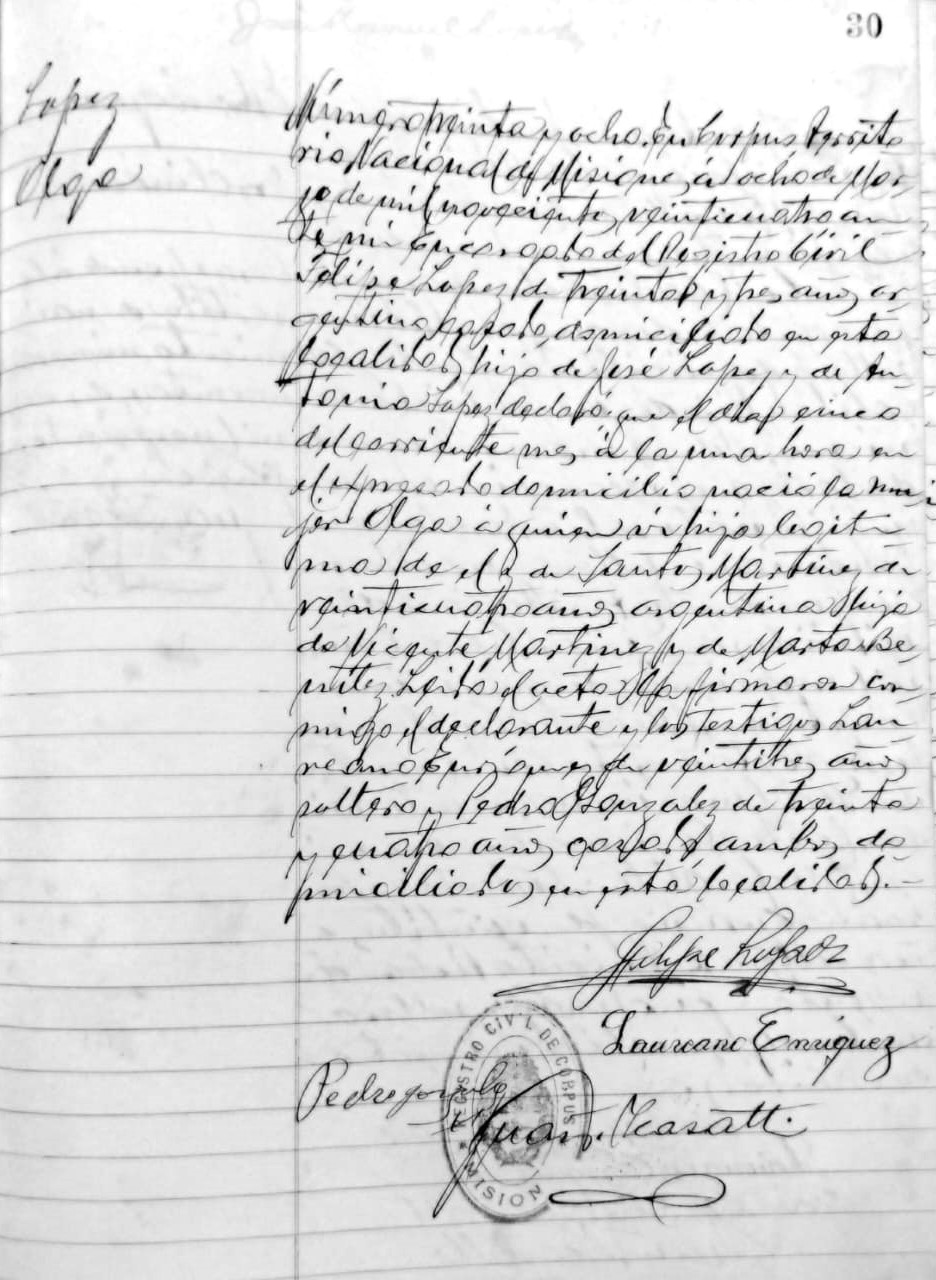 30
Lopez
Olga
Número treinta y ocho. En Corpus Territo
rio Nacional de Misiones, á ocho de Mar-
zo de mil novecientos veinticuatro an-
te mi Encargado del Registro Civil
Felipe Lopez de treinta y tres años, ar-
gentino casado, domiciliado en esta
localidad, hijo de José Lopez y de An-
tonia Lopez declaró: que el dia cinco
del corriente mes á la una hora en
el expresado domicilio nació la mu-
jer Olga á quien vi hija legiti-
ma de el y de Santos Martinez de
veinticuatro años argentina hija
de Vicente Martinez y de Marta Be-
nitez. Leida el acta la firmaron con
migo el declarante y los testigos Lau-
reano Enriquez de veintitres años
soltero y Pedro Gonzalez de treinta
y cuatro años, casado ambos do
miciliados en esta localidad.-
Felipe Lopez
Laureano Enriquez
Pedro gonzalez
Juan
REGISTRO CIVIL DE CORPUS
MISION